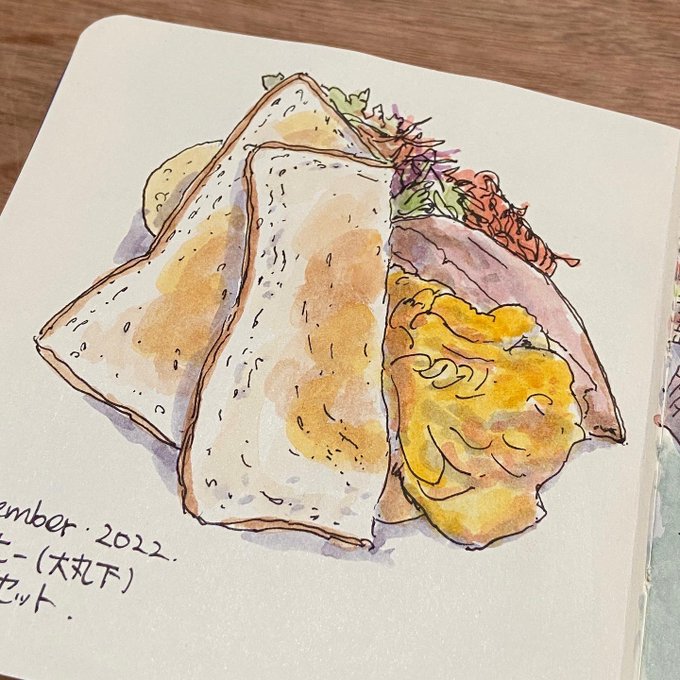 ember. 2022.
ヒー(大丸下)
セット.